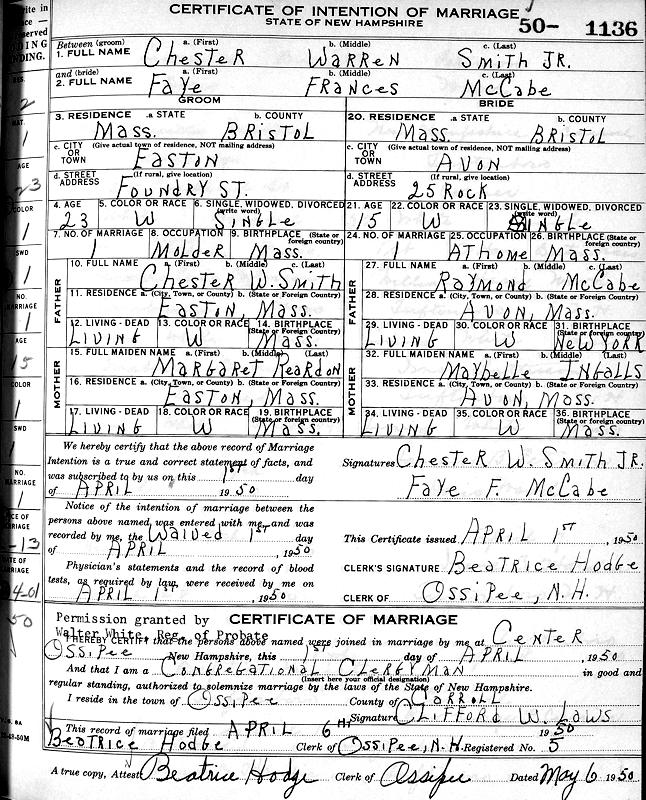 CERTIFICATE OF INTENTION OF MARRIAGE
STATE OF NEW HAMPSHIRE 50- 1136
Between (groom) a. (First) b. (Middle) c. (Last)
1. FULL NAME Chester Warren Smith Jr.
and (bride) a. (First) b. (Middle) c. (Last)
2. FULL NAME Faye Frances McCabe
GROOM BRIDE
3. RESIDENCE a. STATE b. COUNTY 20. RESIDENCE a. STATE b. COUNTY
Mass. Bristol Mass. Bristol
c. CITY OR TOWN (Give actual town of residence, NOT mailing address) c. CITY OR TOWN (Give actual town of residence, NOT mailing address)
Easton Avon
d. STREET ADDRESS (If rural, give location) d. STREET ADDRESS (If rural, give location)
Foundry St. 25 Rock
4. AGE 5. COLOR OR RACE 6. SINGLE, WIDOWED, DIVORCED (write word) 21. AGE 22. COLOR OR RACE 23. SINGLE, WIDOWED, DIVORCED (write word)
23 W Single 15 W Single
7. NO. OF MARRIAGE 8. OCCUPATION 9. BIRTHPLACE (State or foreign country) 24. NO. OF MARRIAGE 25. OCCUPATION 26. BIRTHPLACE (State or foreign country)
1 Molder Mass. 1 At home Mass.
FATHER 10. FULL NAME a. (First) b. (Middle) c. (Last) FATHER 27. FULL NAME a. (First) b. (Middle) c. (Last)
Chester W. Smith Raymond McCabe
11. RESIDENCE a. (City, Town, or County) b. (State or Foreign Country) 28. RESIDENCE a. (City, Town, or County) b. (State or Foreign Country)
Easton, Mass. Avon, Mass.
12. LIVING - DEAD 13. COLOR OR RACE 14. BIRTHPLACE (State or foreign Country) 29. LIVING - DEAD 30. COLOR OR RACE 31. BIRTHPLACE (State or foreign Country)
Living W Mass. Living W New York
MOTHER 15. FULL MAIDEN NAME a. (First) b. (Middle) (Last) MOTHER 32. FULL MAIDEN NAME a. (First) b. (Middle) (Last)
Margaret Reardon Maybelle Ingalls
16. RESIDENCE a. (City, Town, or County) b. (State or Foreign Country) 33. RESIDENCE a. (City, Town, or County) b. (State or Foreign Country)
Easton, Mass. Avon, Mass.
17. LIVING - DEAD 18. COLOR OR RACE 19. BIRTHPLACE (State or foreign Country) 34. LIVING - DEAD 35. COLOR OR RACE 36. BIRTHPLACE (State or foreign Country)
Living W Mass. Living W Mass.
We hereby certify that the above record of Marriage
Intention is a true and correct statement of facts, and
was subscribed to by us on this 1st day
of April 1950
Signatures Chester W. Smith Jr.
Faye F. McCabe
Notice of the intention of marriage between the
persons above named was entered with me, and was
recorded by me, the Waived 1st day
of April, 1950
This Certificate issued April 1st, 1950
Physician's statements and the record of blood
tests, as required by law, were received by me on
April 1st, 1950
CLERK'S SIGNATURE Beatrice Hodge
CLERK OF Ossipee, N.H.
Permission granted by CERTIFICATE OF MARRIAGE
Walter White, Reg. of Probate
I HEREBY CERTIFY that the persons above named were joined in marriage by me at Center
Ossipee New Hampshire, this 1st day of April, 1950
And that I am a Congregational Clergyman in good and
(Insert here your official designation)
regular standing, authorized to solemnize marriage by the laws of the State of New Hampshire.
I reside in the town of Ossipee County of Carroll
Signature Clifford W. Laws
This record of marriage filed April 6 1950
Beatrice Hodge Clerk of Ossipee, N.H. Registered No. 5
A true copy, Attest Beatrice Hodge Clerk of Ossipee Dated May 6 1950